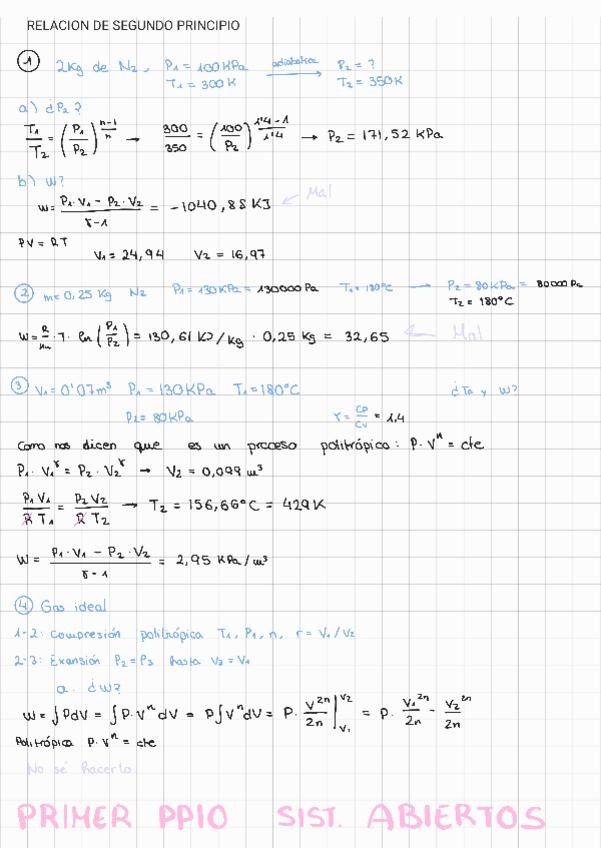 RELACION DE SEGUNDO PRINCIPIO
① 2Kg de N₂, P₁ = 100KPa adiabática → P₂ = ?
T₁ = 300K T₂ = 350K
a) ¿P₂?
T₁/T₂ = (P₁/P₂)^((n-1)/n) → 300/350 = (100/P₂)^((1'4-1)/1'4) → P₂ = 171,52 KPa
b) w?
w = (P₁·V₁ - P₂·V₂)/(γ-1) = -1040,88 KJ ← Mal
PV = RT V₁ = 24,94 V₂ = 16,97
② m = 0,25 Kg N₂ P₁ = 130KPa = 130000Pa T₁ = 180°C → P₂ = 80KPa = 80000Pa
T₂ = 180°C
W = R/Mm · T · ln(P₁/P₂) = 130,61 KJ/kg · 0,25 kg = 32,65 ← Mal
③ V₁ = 0'07m³ P₁ = 130KPa T₁ = 180°C ¿T₂ y W?
P₂ = 80KPa γ = Cp/Cv = 1,4
Como nos dicen que es un proceso politrópico: P·Vⁿ = cte
P₁·V₁^γ = P₂·V₂^γ → V₂ = 0,099 m³
P₁V₁/RT₁ = P₂V₂/RT₂ → T₂ = 156,66°C = 429K
W = (P₁·V₁ - P₂·V₂)/(γ-1) = 2,95 KPa/m³
④ Gas ideal
1-2: Compresión politrópica T₁, P₁, n, r = V₁/V₂
2-3: Exansión P₂ = P₃ hasta V₃ = V₁
a. ¿W?
W = ∫PdV = ∫P·VⁿdV = P∫VⁿdV = P·V²ⁿ/2n |V₂ V₁ = P·V₁²ⁿ/2n - V₂²ⁿ/2n
Politrópica P·Vⁿ = cte
No sé hacerlo
PRIMER PPIO SIST. ABIERTOS